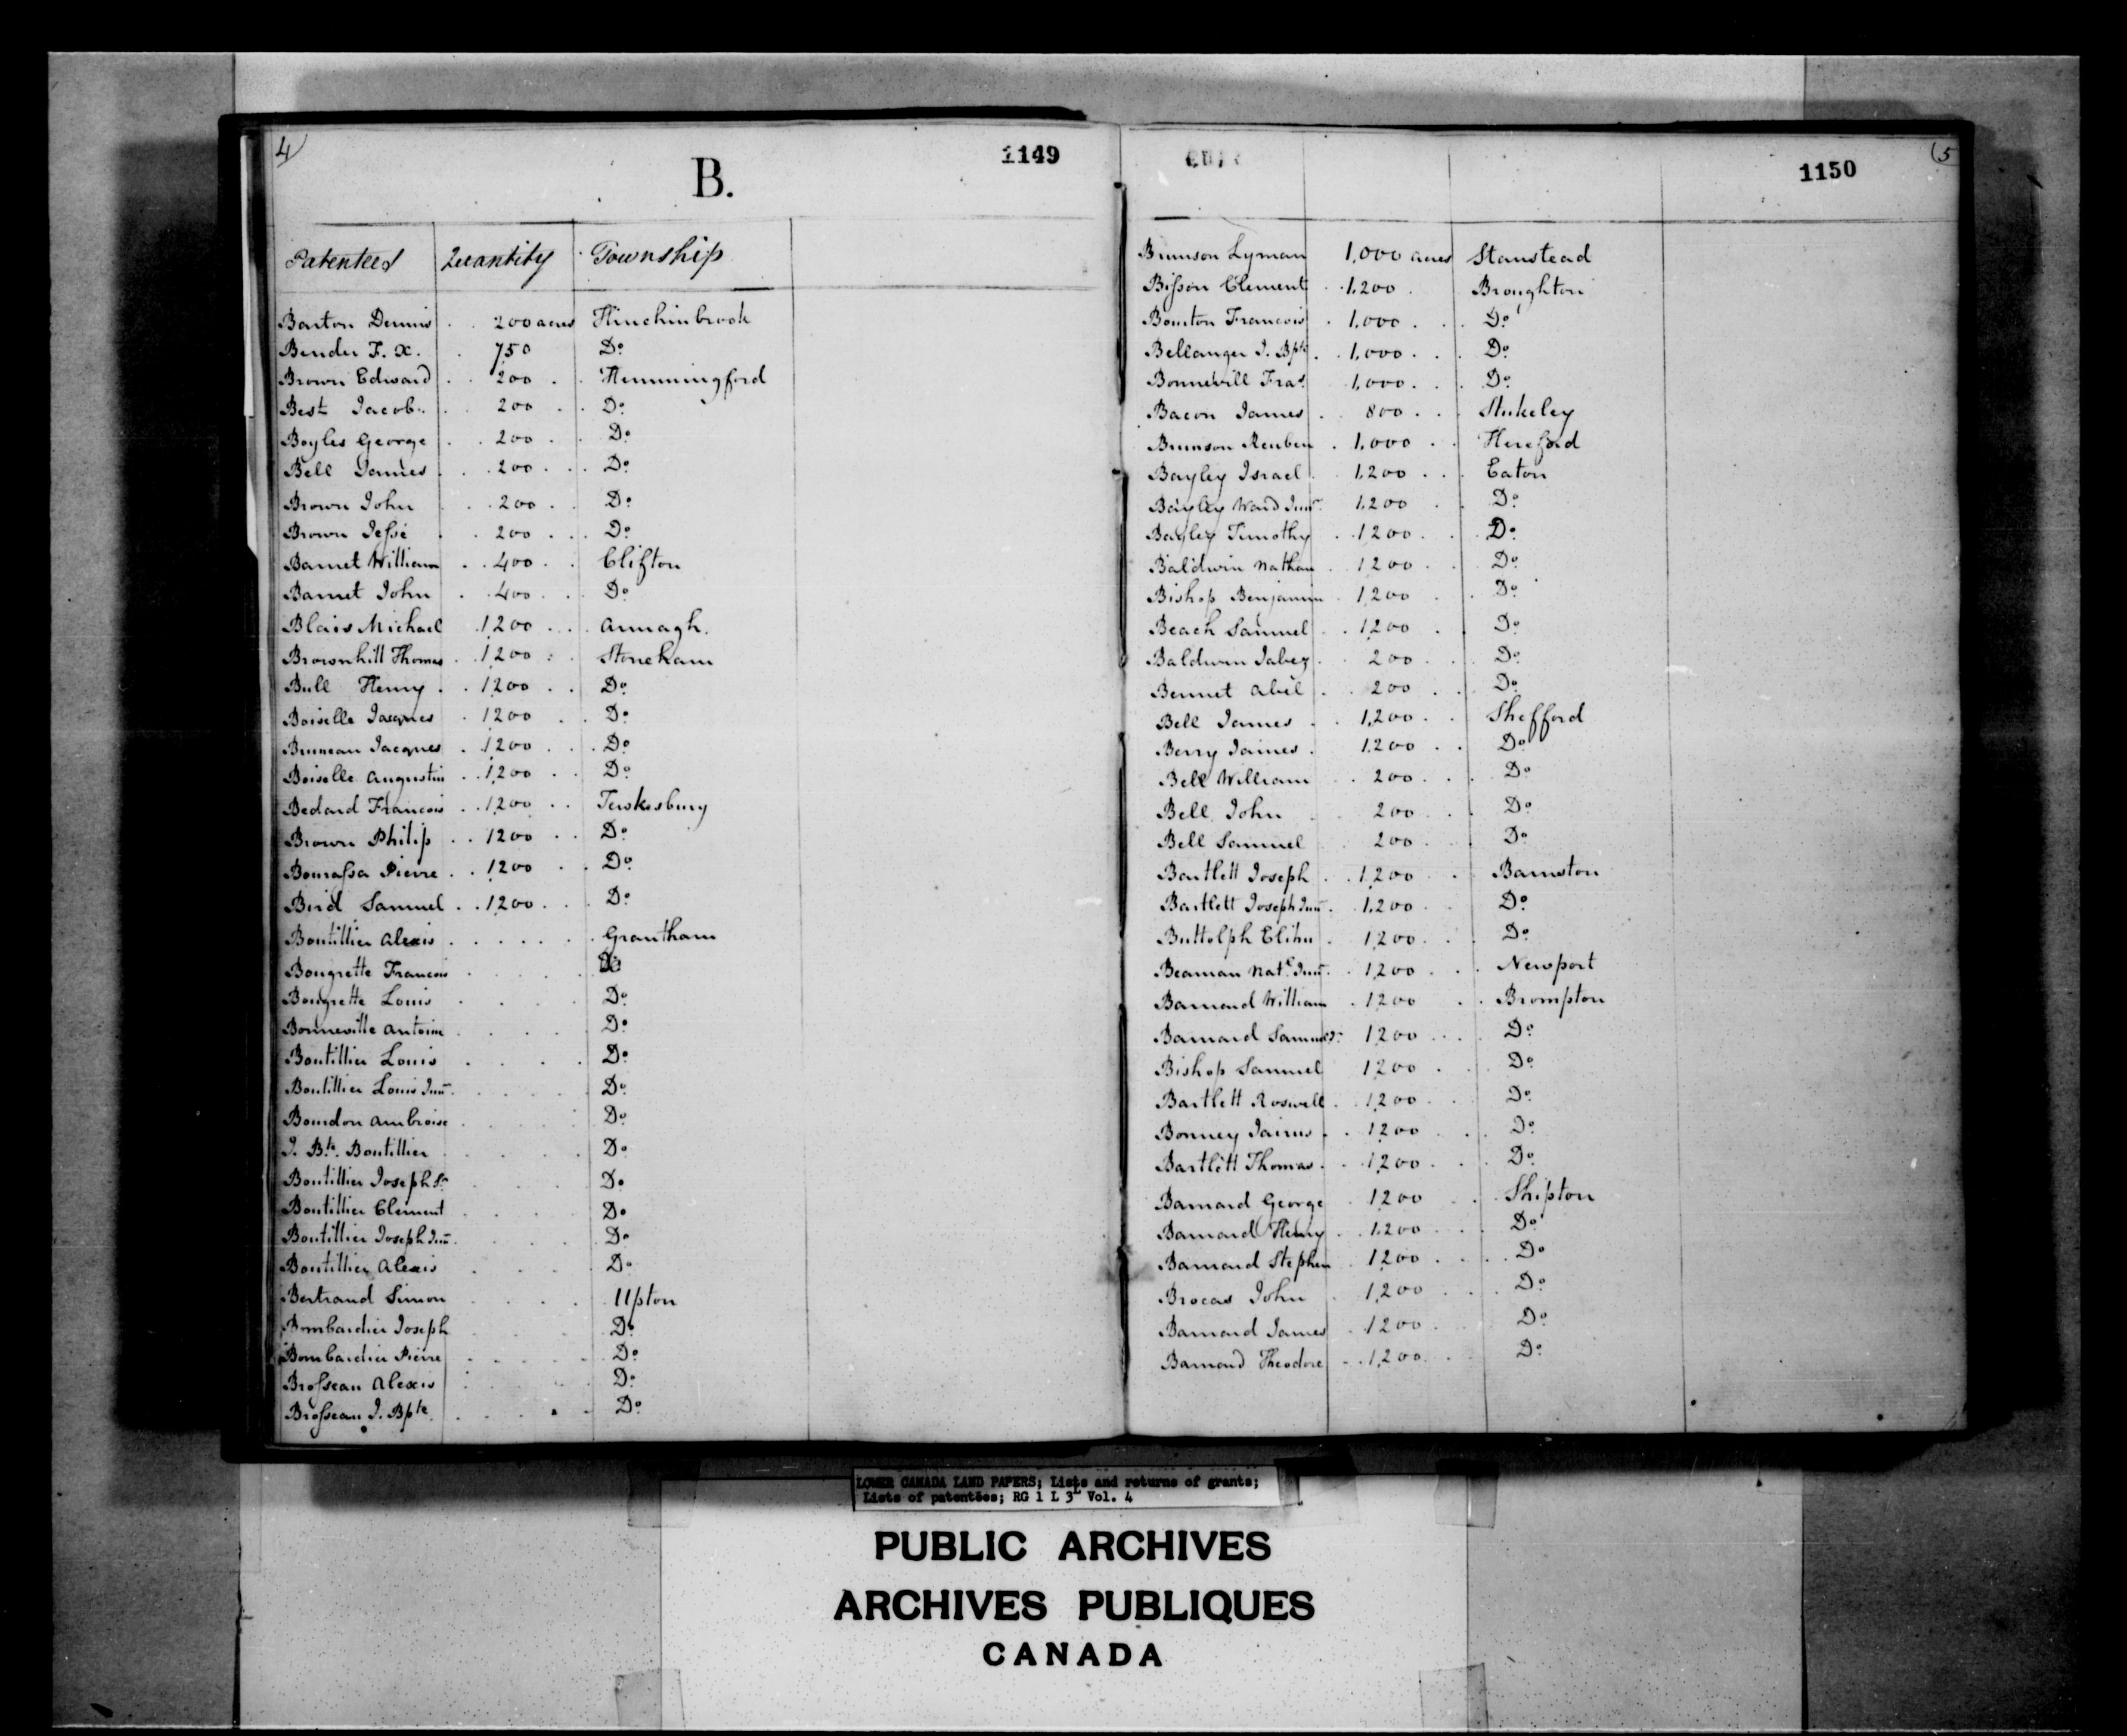 4
B.
1149
Patentees Quantity Township
Barton Dennis . . 200 acres Hinchinbrook
Bender F. X. . 750 Do
Brown Edward . . 200 . . Hemmingford
Best Jacob . . 200 . . Do
Boyles George . . 200 . Do
Bell James . . 200 . . . Do
Brown John . 200 . . Do
Brown Jesse . . 200 . . . Do
Barnet William . . 400 . . Clifton
Barnet John . 400 . . . Do
Blais Michael 1,200 . . . Armagh.
Brownhill Thomas . 1,200 . . Stoneham
Bull Henry . . 1,200 . . Do
Boiselle Jacques . 1200 . . Do
Bruneau Jacques . 1,200 . . . Do
Boiselle Augustin . . 1,200 . . Do
Bedard Francois . . 1,200 . . Tewkesbury
Brown Philip . . 1200 . . Do
Bourassa Pierre . . 1,200 . . Do
Bird Samuel . . 1,200 . . . Do
Boutillier Alexis . . . . . . . Grantham
Bougrette Francois . . . . . Do
Bougrette Louis . . . . Do
Bonneville Antoine . . . . . Do
Boutillier Louis . . . . Do
Boutillier Louis Junr. . . . . . Do
Bourdon Ambroise . . . . . Do
J. Bte. Boutillier . . . . . Do
Boutillier Joseph Sr . . . . Do
Boutillier Clement . . . . Do
Boutillier Joseph Junr. . . . . Do
Boutillier Alexis . . . . Do
Bertrand Simon . . . . Upton
Bombardier Joseph . . . . Do
Bombardier Pierre . . . . . Do
Brosseau Alexis . . . . Do
Brosseau J. Bpte. . . . . . Do
(5
1150
Brunson Lyman 1,000 acres Stanstead
Bisson Clement . 1,200 . Broughton
Bourton Francois . 1,000 . . . Do
Bellanger J. Bpte . . 1,000 . . . Do
Bonnevill Fras. 1,000 . . . Do
Bacon James . 800 . . . Stukeley
Brunson Reuben . 1,000 . . Hereford
Bayley Israel . 1,200 . . . Eaton
Bayley Ward Junr. 1,200 . Do
Bayley Timothy . 1200 . . . Do
Baldwin Nathan . 1200 . . Do
Bishop Benjamin . 1,200 . . Do
Beach Samuel . . 1,200 . . Do
Baldwin Jabez . . 200 . . . Do
Bennet Abel . . 200 . . . Do
Bell James . . 1,200 . . Shefford
Berry James . 1,200 . . Do
Bell William . . 200 . . . Do
Bell John . 200 . . . Do
Bell Samuel 200 . . . Do
Bartlett Joseph . . 1,200 . . Barnston
Bartlett Joseph Junr. . 1,200 . . Do
Buttolph Elihu . 1,200 . . . Do
Beaman Natl. Junr. . 1,200 . . . Newport
Barnard William . 1200 . . Brompton
Barnard Samuel Sr. 1200 . . . Do
Bishop Samuel 1200 . . Do
Bartlett Roswell . . 1,200 . . Do
Bonney Jairus . . 1200 . . . Do
Bartlett Thomas . . 1,200 . . . Do
Barnard George . 1200 . . . Shipton
Barnard Henry . . 1.200 . . . Do
Barnard Stephen . 1200 . . . . Do
Brocas John . 1,200 . . . Do
Barnard James . 1200 . Do
Barnard Theodore . . 1,200 . . Do
LOWER CANADA LAND PAPERS; Lists and returns of grants;
Lists of patentees; RG 1 L 3L Vol. 4
PUBLIC ARCHIVES
ARCHIVES PUBLIQUES
CANADA